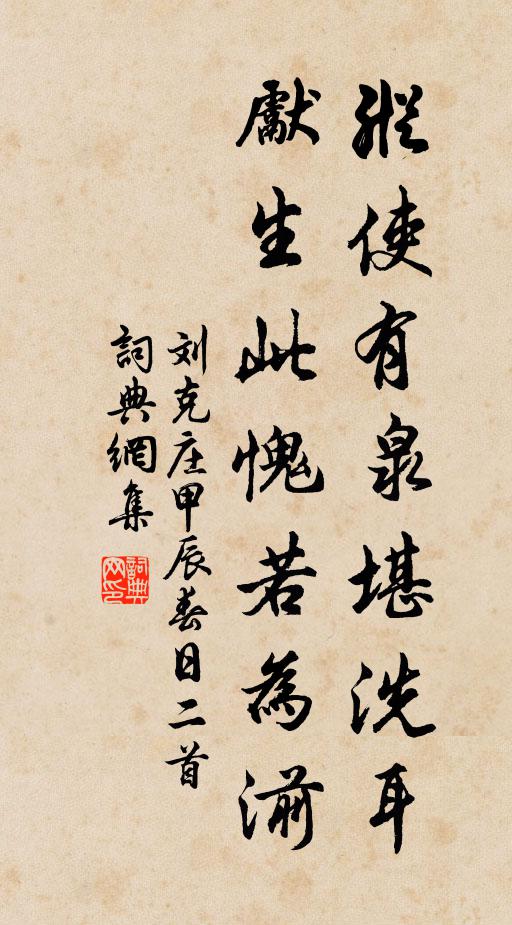 縱使有泉堪洗耳
獻生此愧若為湔
刘克庄甲辰春日二首
詞典網集
詞典网印